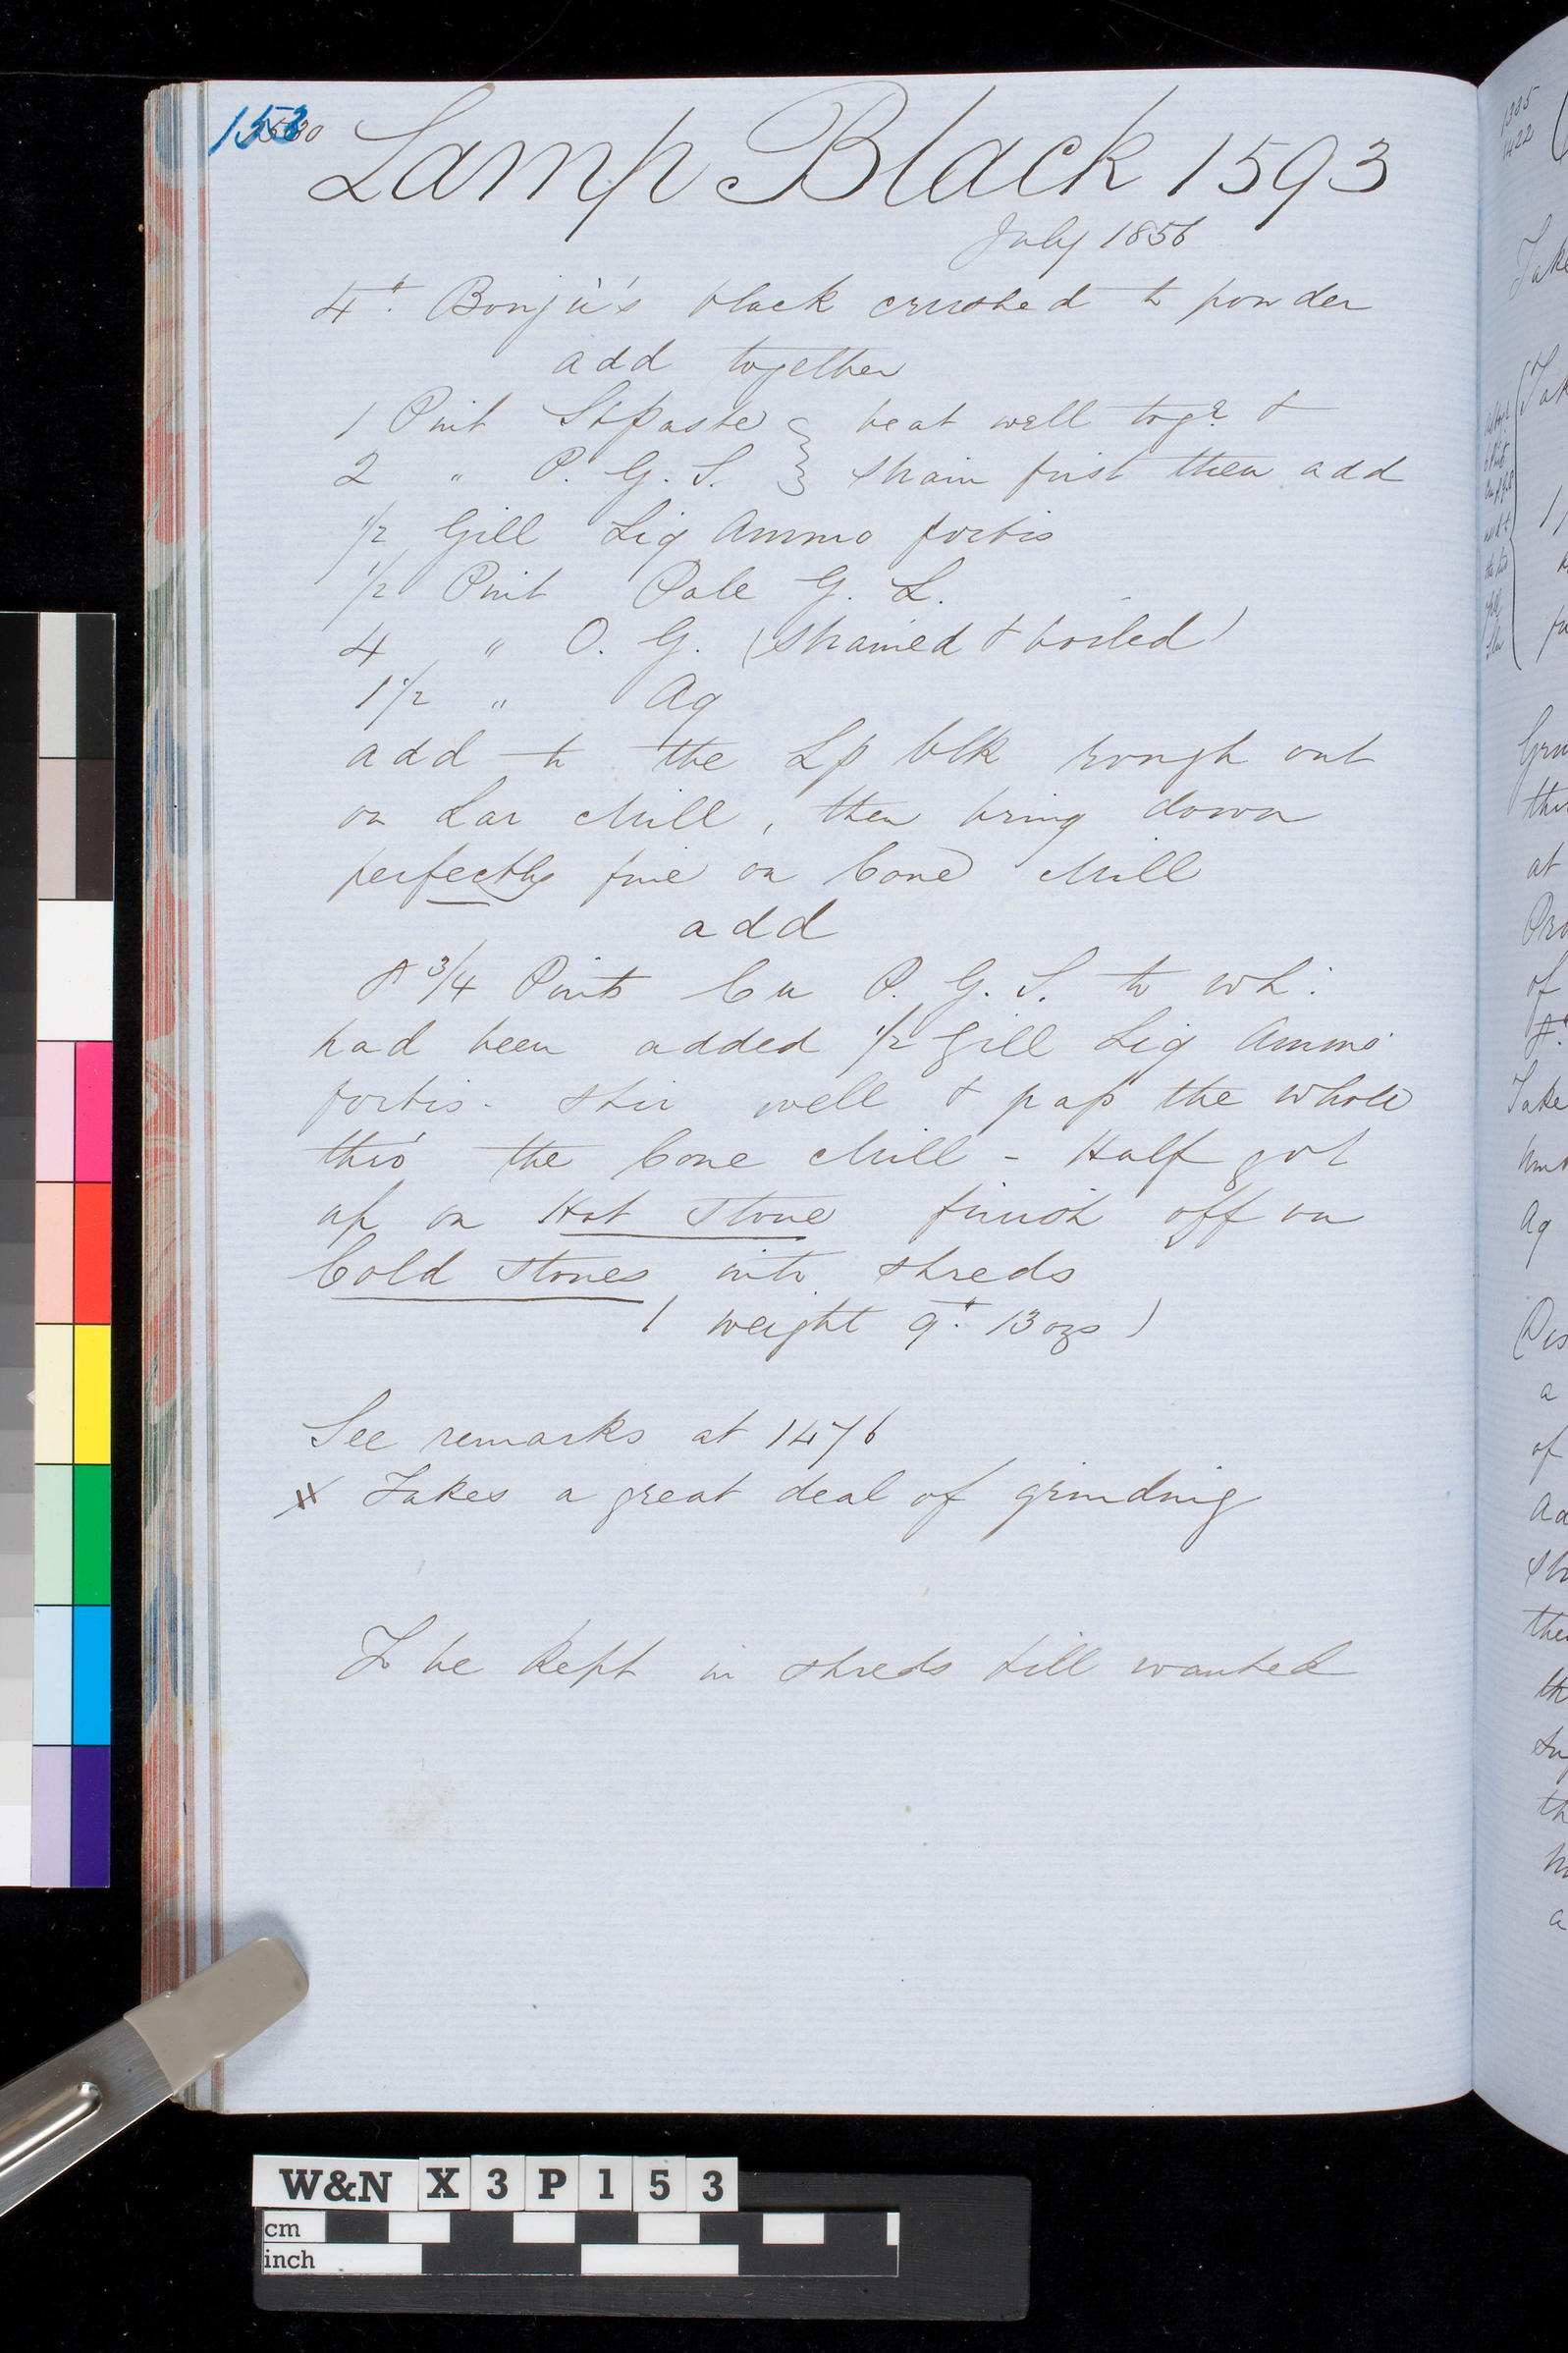 153
Lamp Black 1593
July 1856
4 lb. Bonju's black crushed to powder
add together
1 Pint Stpaste } beat well togr. &
2 " P. G. S. } strain first then add
1/2 Gill Liq Ammo fortis
1/2 Pint Pale G. L.
4 " O. G. (strained & boiled)
1 1/2 " Aq
add to the Lp blk rough out
on Lar Mill, then bring down
perfectly fine on Cone Mill
add
3/4 Pints Cu P. G. S. to wh:
had been added 1/2 Gill Liq Ammo
fortis - stir well & pass the whole
thro' the Cone Mill - Half got
up on Hot Stone finish off on
Cold Stones into shreds
( weight 9 lb. 13 ozs )
See remarks at 1476
# Takes a great deal of grinding
To be kept in shreds till wanted
W&N X3P153
cm
inch